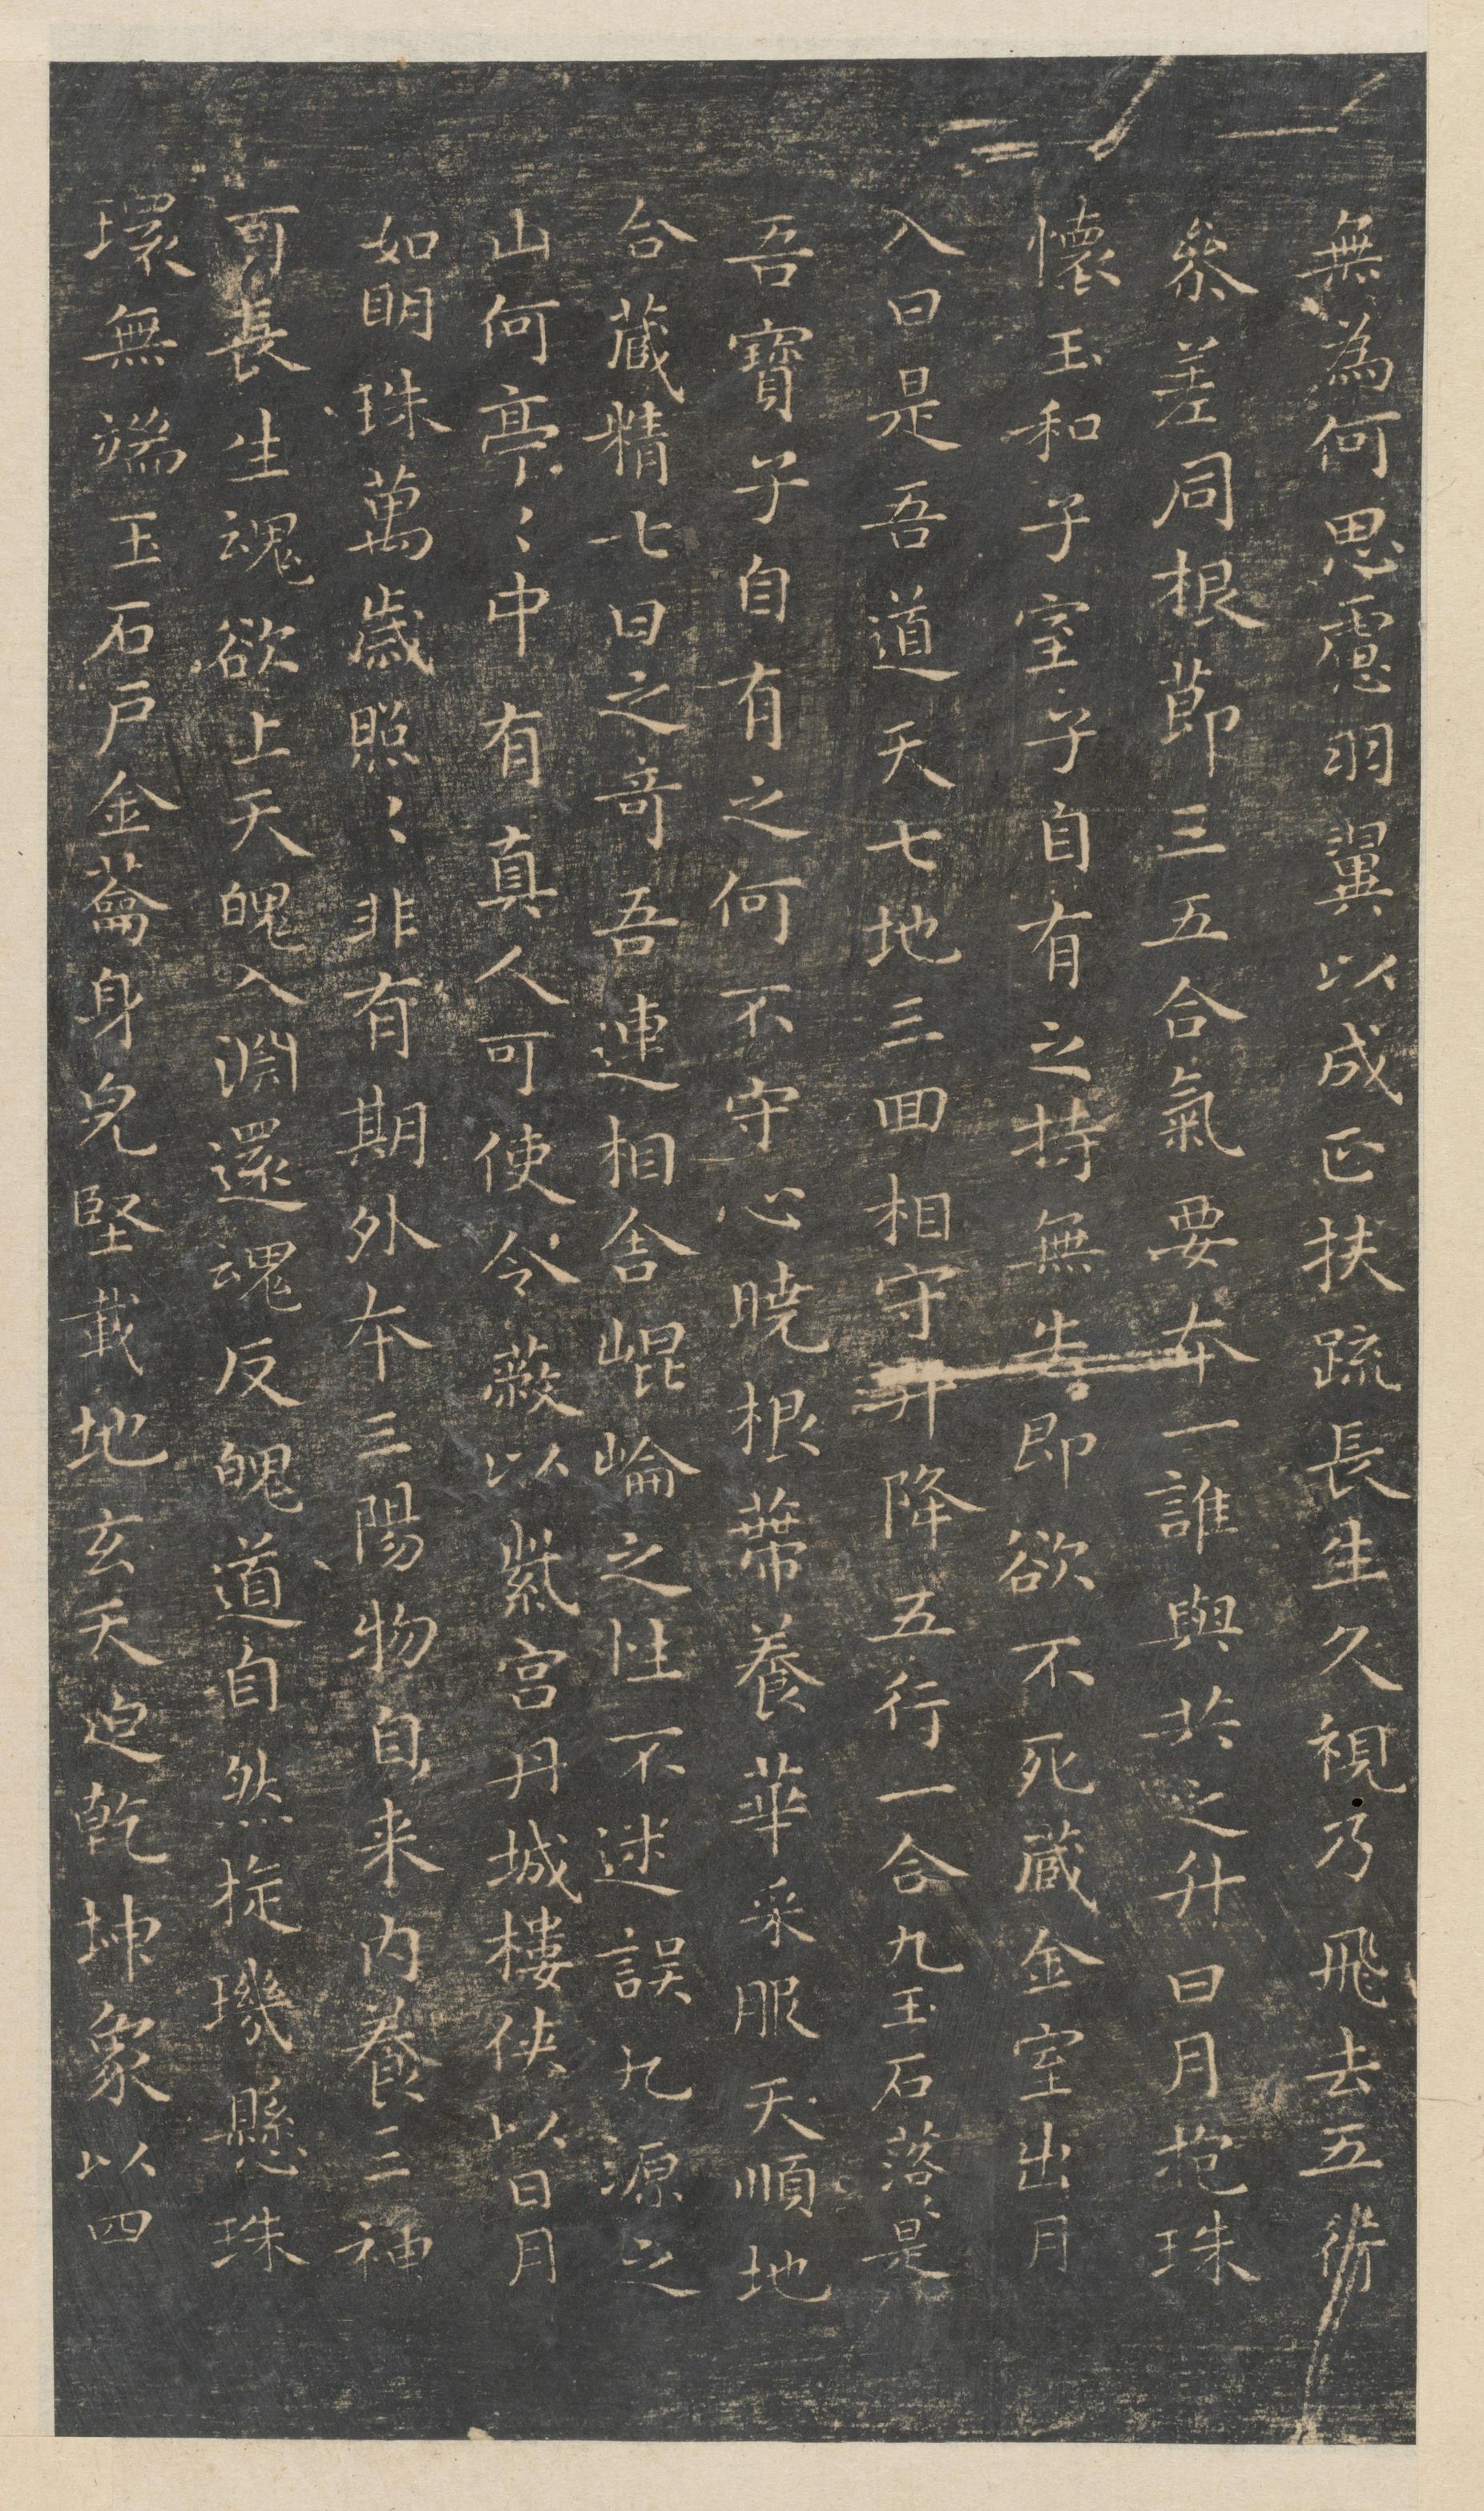 無為何思慮羽翼以成正扶疏長生久視乃飛去五行
參差同根節三五合氣要本一誰與共之升日月抱珠
懷玉和子室子自有之持無失即欲不死藏金室出月
入日是吾道天七地三回相守升降五行一合九玉石落是
吾寶子自有之何不守心曉根蔕養華采服天順地
合藏精七日之奇吾連相舍崐崘之性不迷誤九源之
山何亭〻中有真人可使令蔽以紫宮丹城樓俠以日月
如明珠萬歲照〻非有期外本三陽物自来內養三神
可長生魂欲上天魄入淵還魂反魄道自然旋璣懸珠
環無端玉石戶金籥身皃堅載地玄天迫乾坤象以四